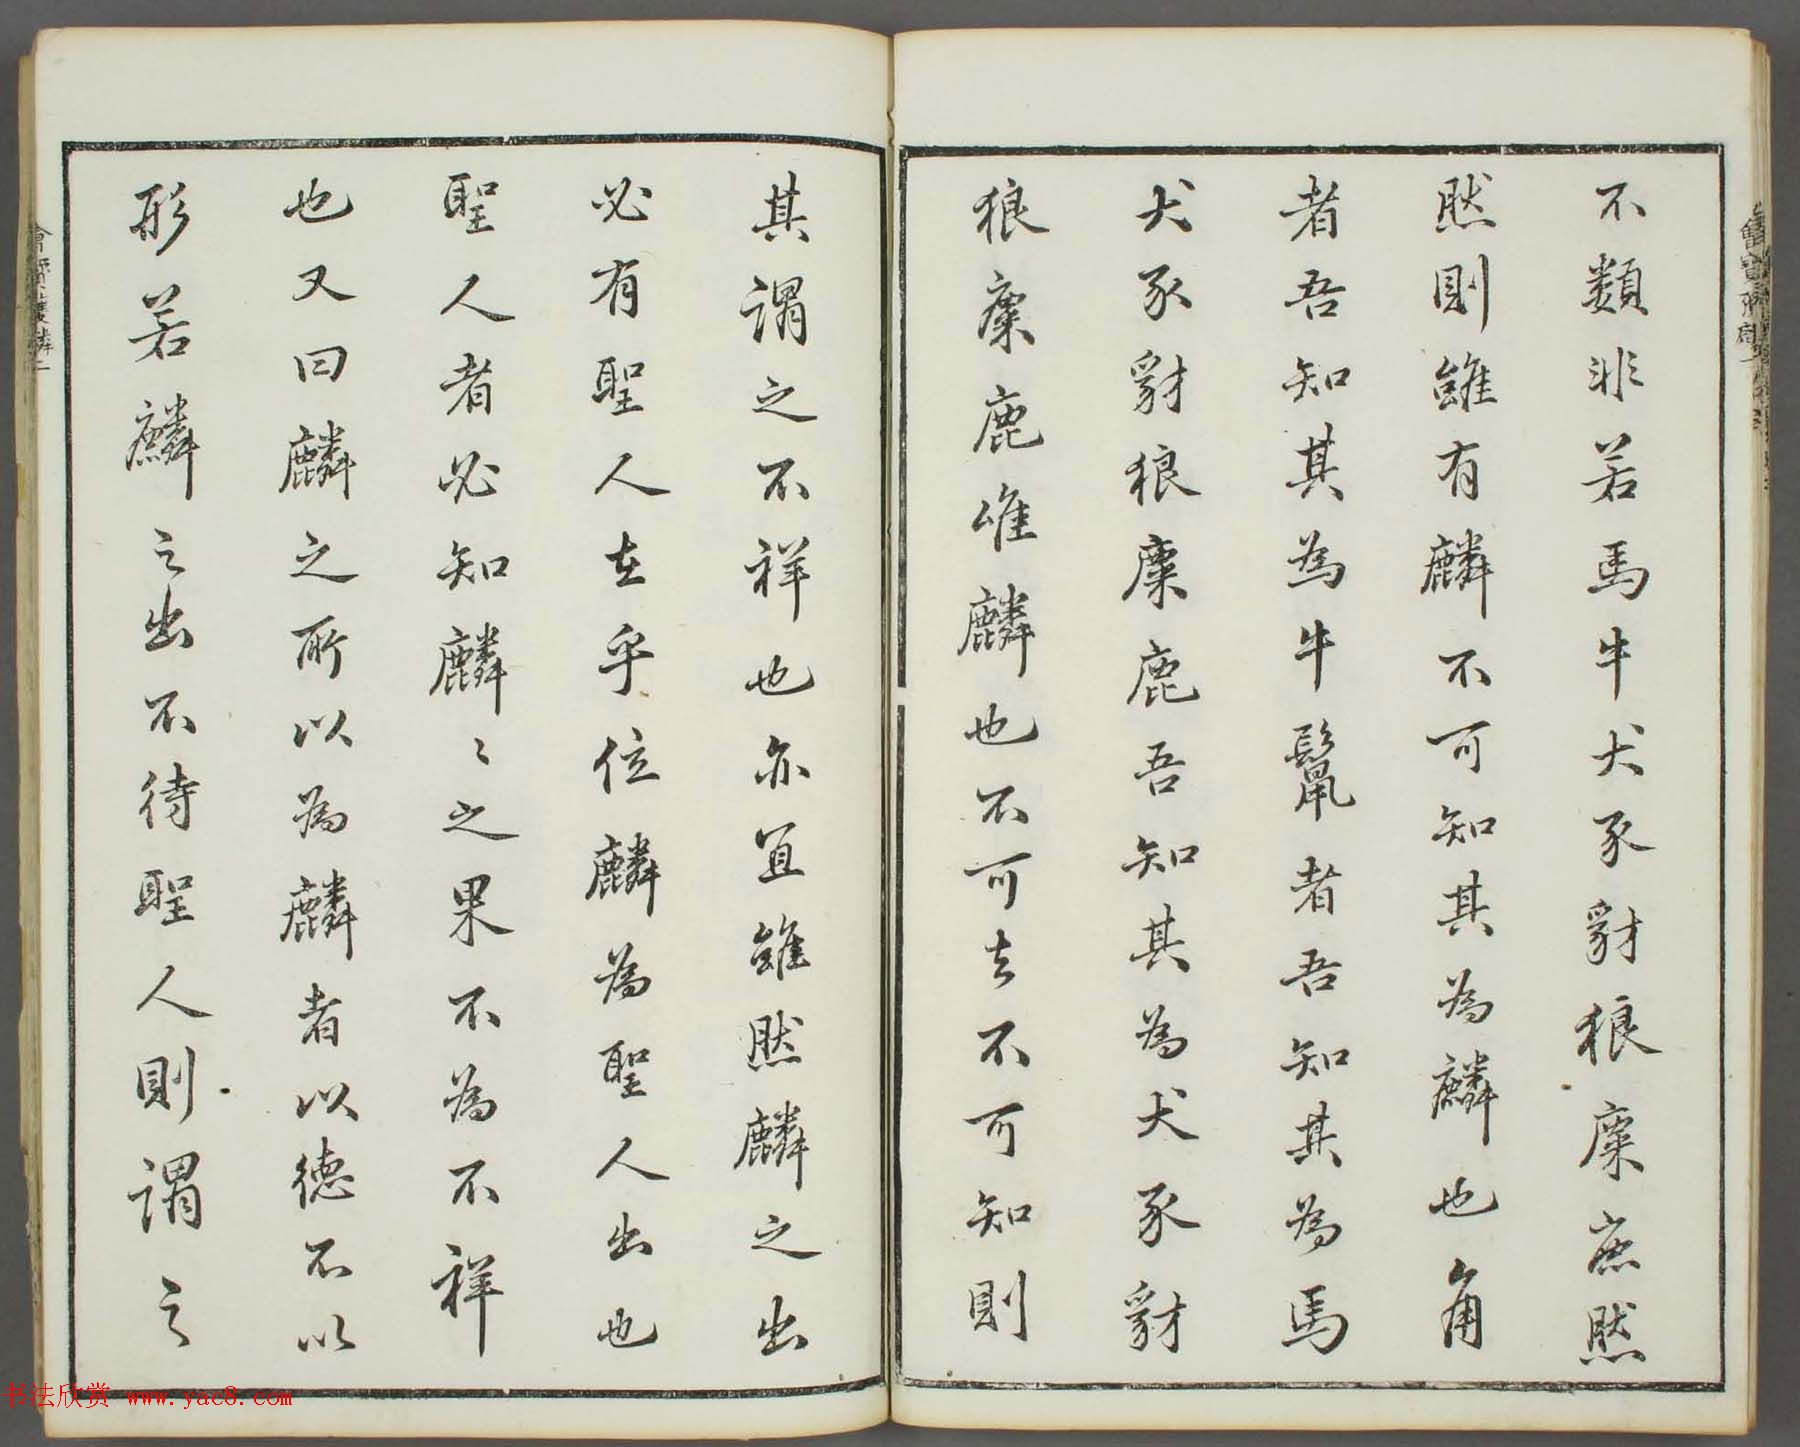 不類非若馬牛犬豕豺狼麋鹿然
然則雖有麟不可知其為麟也角
者吾知其為牛鬣者吾知其為馬
犬豕豺狼麋鹿吾知其為犬豕豺
狼麋鹿惟麟也不可知不可知則
其謂之不祥也亦宜雖然麟之出
必有聖人在乎位麟為聖人出也
聖人者必知麟〻之果不為不祥
也又曰麟之所以為麟者以德不以
形若麟之出不待聖人則謂之
书法欣赏 www.yac8.com